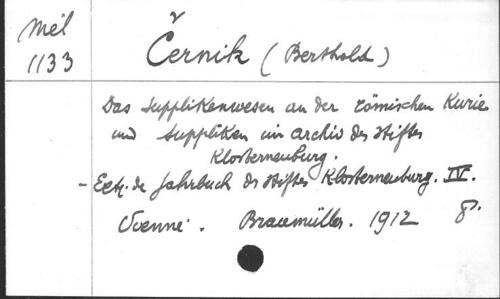 Mél
1133
Černik (Berthold)
Das Supplikenwesen an der römischen Kurie
und Suppliken im Archiv des Stiftes
Klosterneuburg.
- Extr. de Jahrbuch des Stiftes Klosterneuburg. IV.
Vienne. Braumüller. 1912 8°.